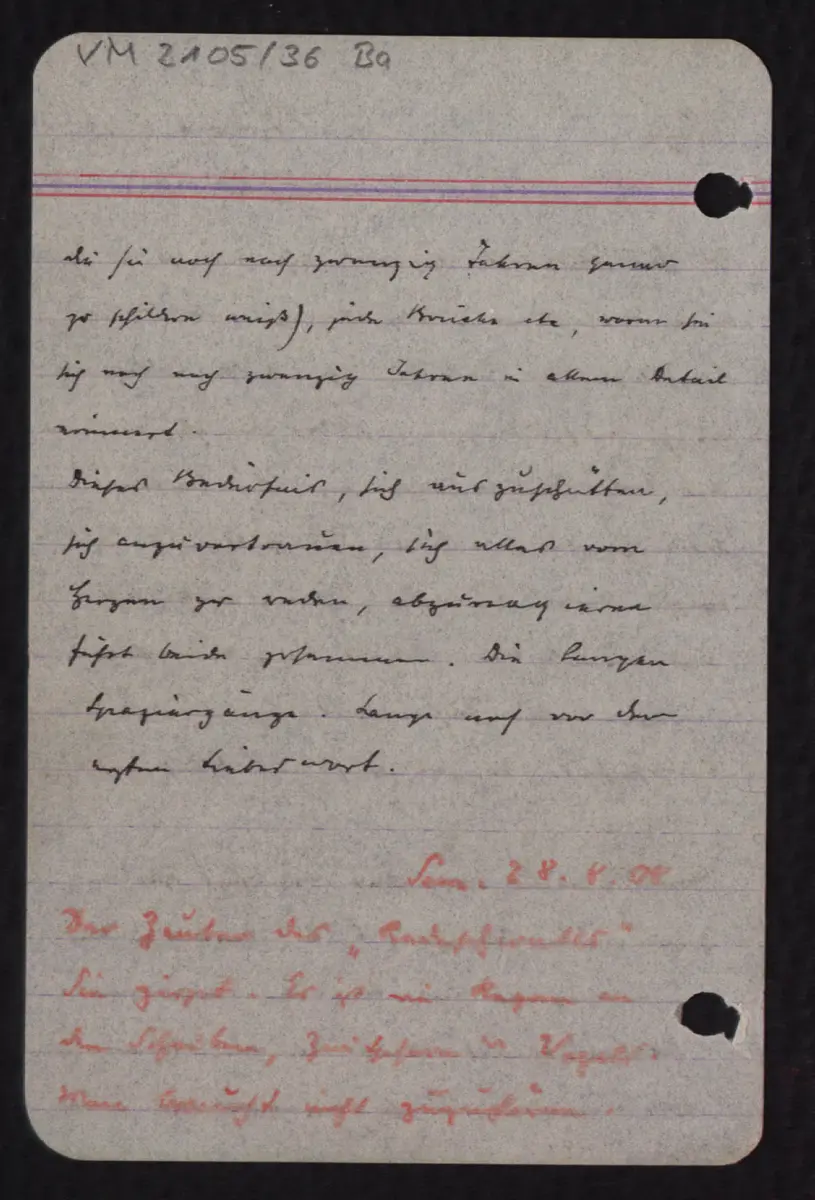 VM 2105/36 Ba
die sie noch nach zwanzig Jahren genau
zu schildern weiß), jede Brücke etc, woran sie
sich noch nach zwanzig Jahren in allem Detail
erinnert.
Dieses Bedürfnis, sich auszuschütten,
sich anzuvertrauen, sich alles vom
Herzen zu reden, abzureagieren
führt beide zusammen. Die langen
Spaziergänge. Lange noch vor dem
ersten Liebeswort.
28. 8. 08
Der Zauber des „Redeschwalls"
Sie zirpt. Es ist wie Regen an
den Scheiben, Zwitschern v Vögeln.
Man braucht nicht zuzuhören.